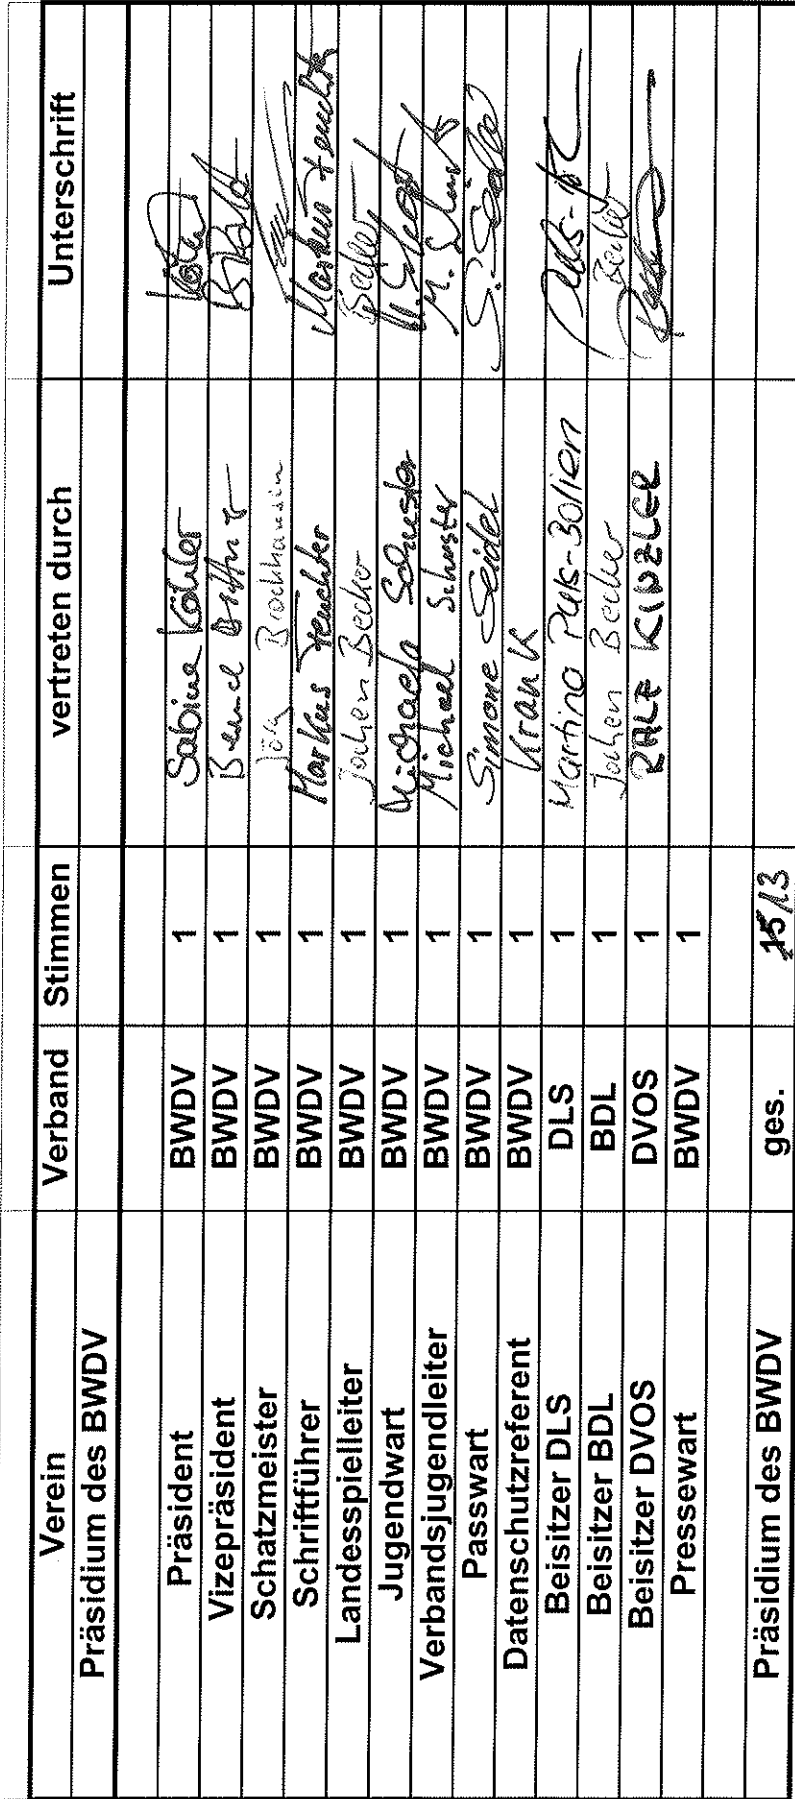 Verein Verband Stimmen vertreten durch Unterschrift
Präsidium des BWDV
Präsident BWDV 1 Sabine Köhler Köhler
Vizepräsident BWDV 1 Bernd
Schatzmeister BWDV 1 Jörg Brockhausen
Schriftführer BWDV 1 Markus Feuchter Markus Feuchter
Landesspielleiter BWDV 1 Jochen Becker Becker
Jugendwart BWDV 1 Michaela Schuster
Verbandsjugendleiter BWDV 1 Michael Schuster M.
Passwart BWDV 1 Simone Seidel S. Seidel
Datenschutzreferent BWDV 1 Krank
Beisitzer DLS DLS 1 Martina Puls-Bollien
Beisitzer BDL BDL 1 Jochen Becker Becker
Beisitzer DVOS DVOS 1 RALF KINZLER
Pressewart BWDV 1
Präsidium des BWDV ges. 15/13